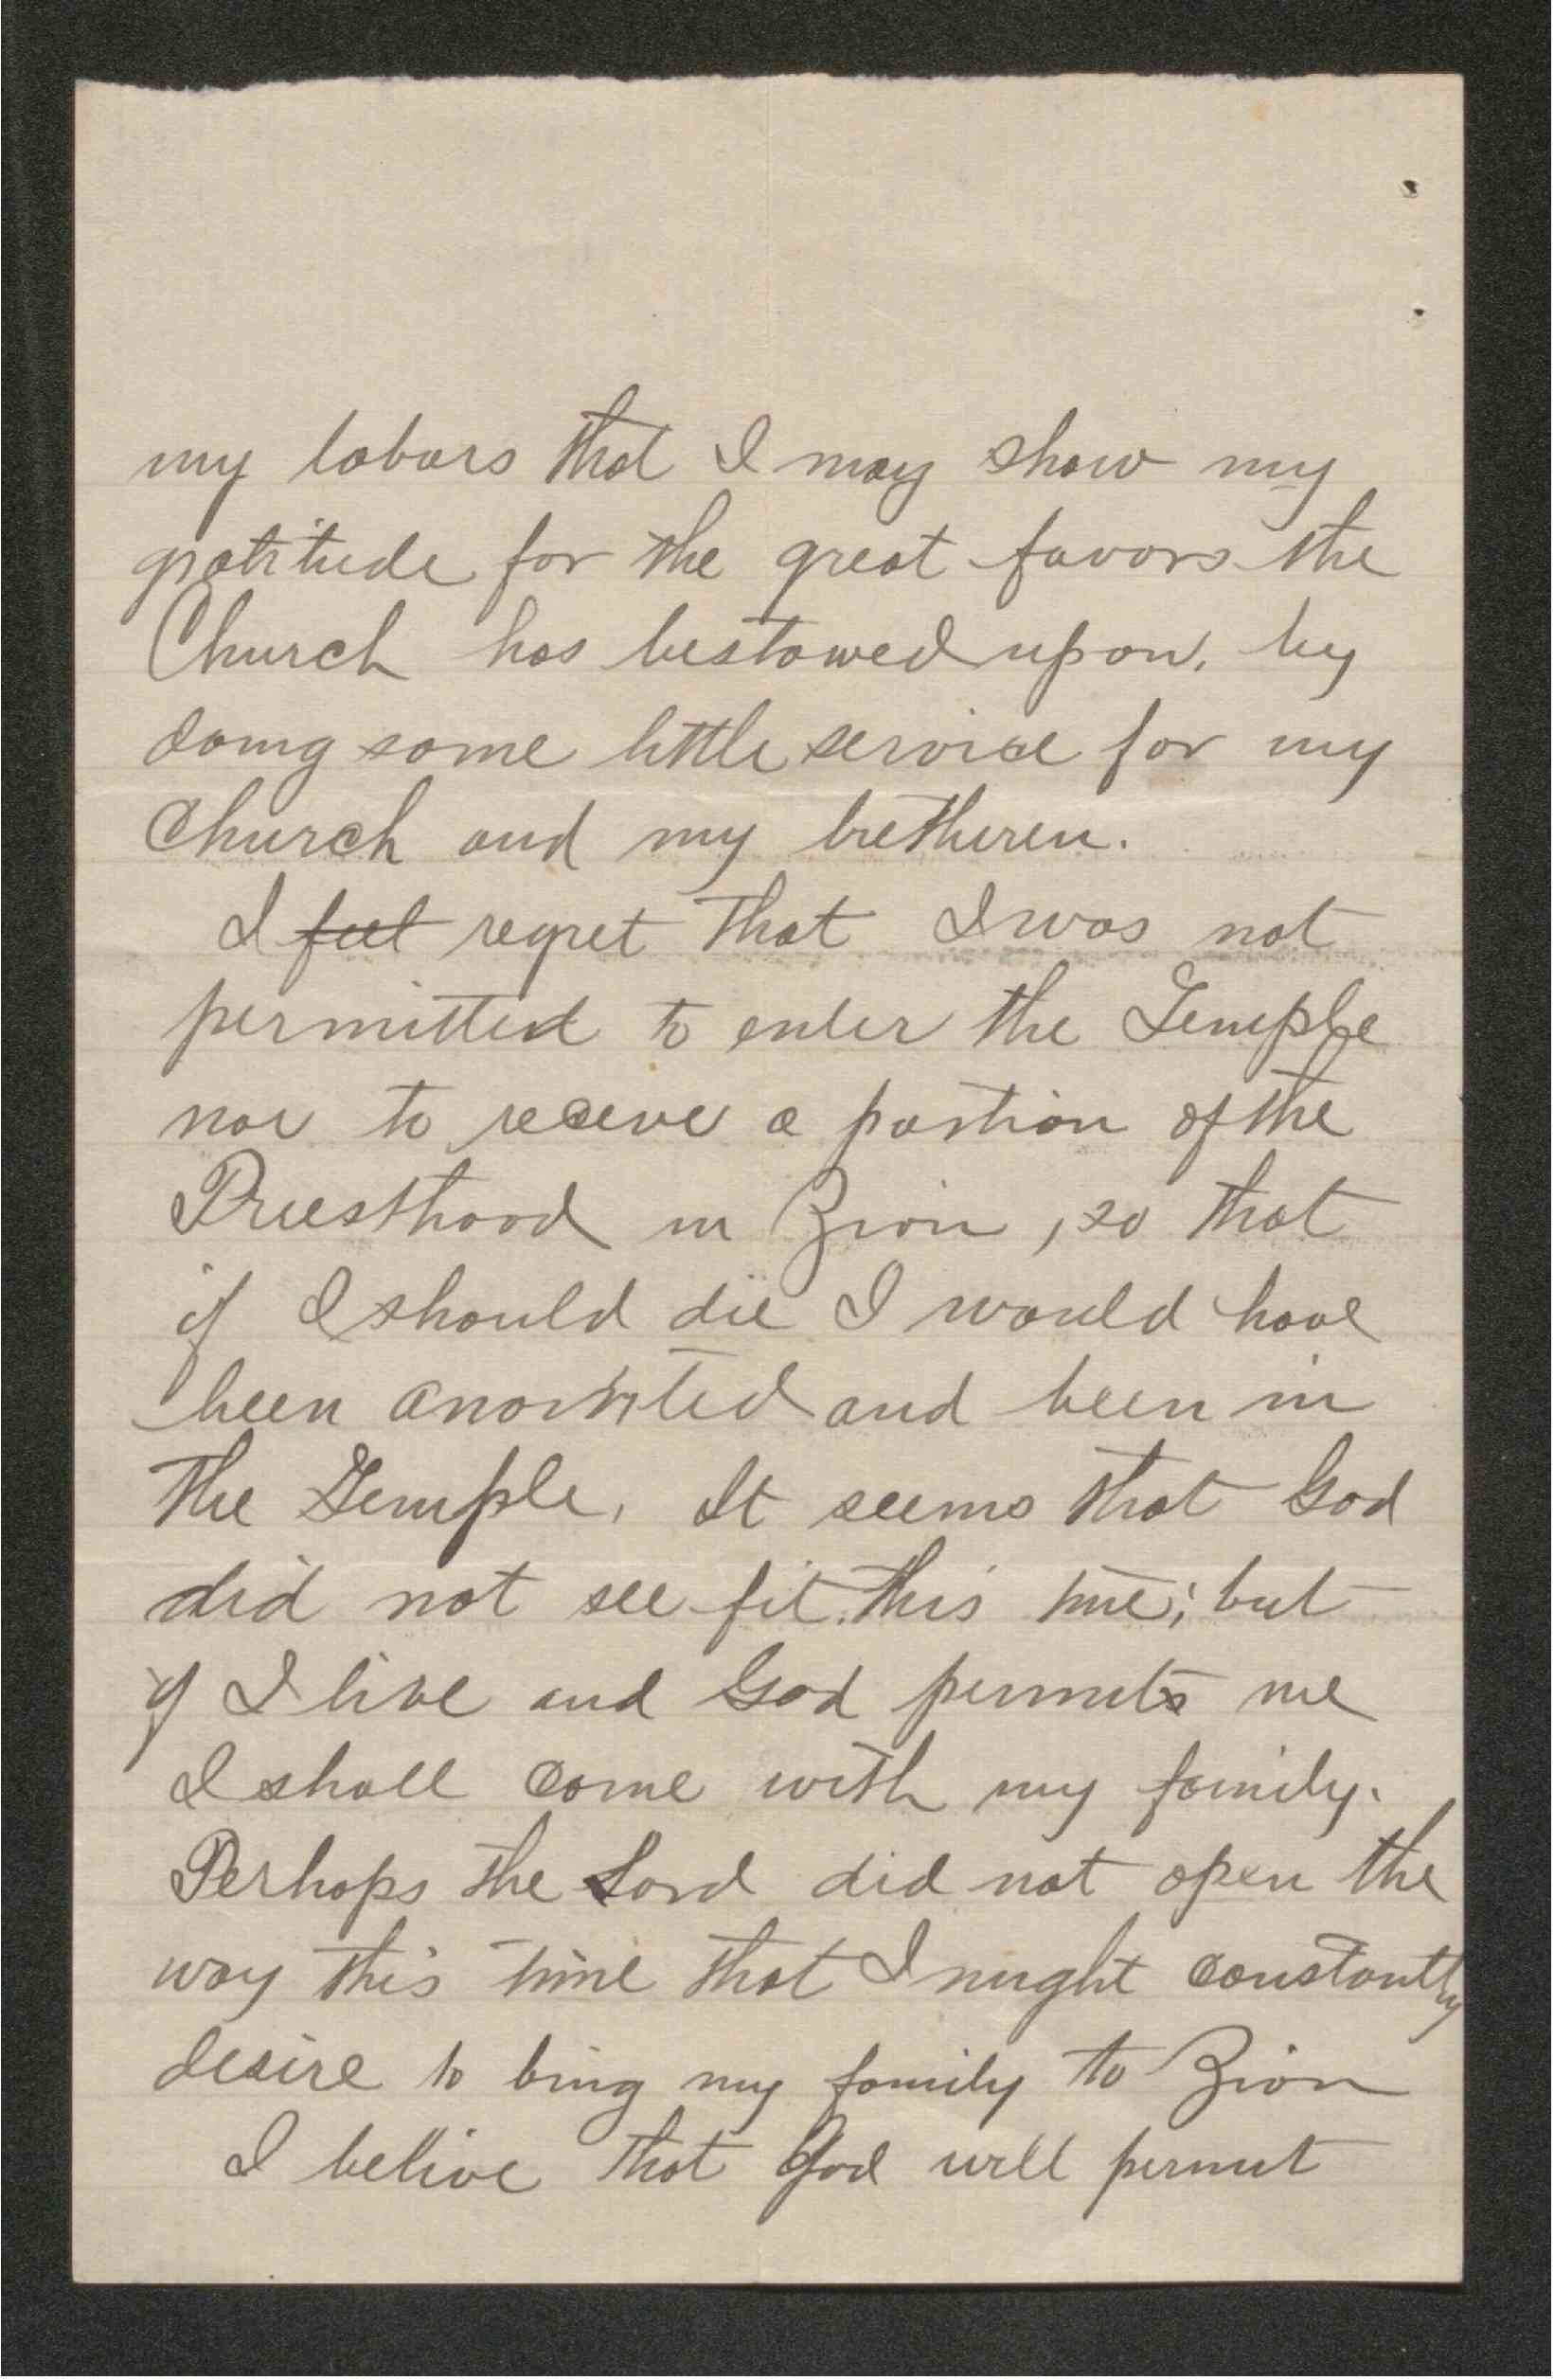 my labors that I may show my
gratitude for the great favors the
Church has bestowed upon, by
doing some little service for my
Church and my bretheren.
I feel regret that I was not
permitted to enter the Temple
nor to receive a portion of the
Priesthood in Zion, so that
if I should die I would have
been anointed and been in
the Temple. It seems that God
did not see fit this time; but
if I live and God permits me
I shall come with my family.
Perhaps the Lord did not open the
way this time that I might constantly
desire to bring my family to Zion
I belive that God will permit